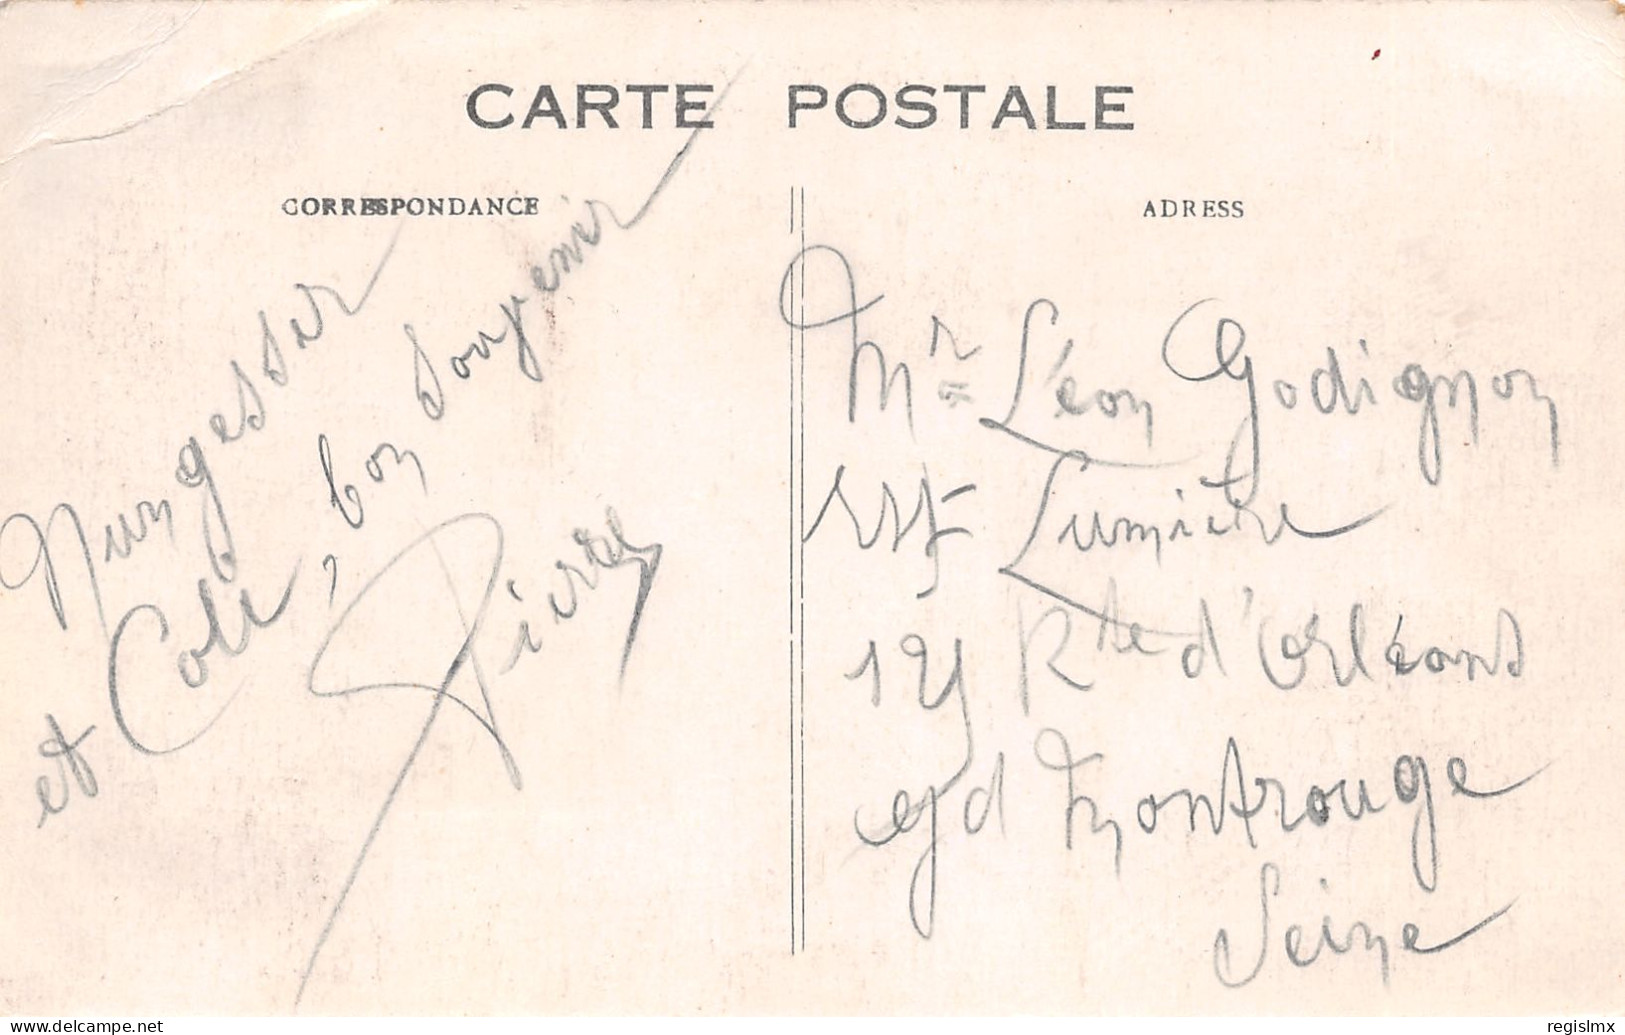 CARTE POSTALE
CORRESPONDANCE
Nungesser
et Coli, bon souvenir
Pierre
ADRESS
Mr Léon Godignon
Lumière
Rte d'Orléans
gd Montrouge
Seine
delcampe.net
regislmx